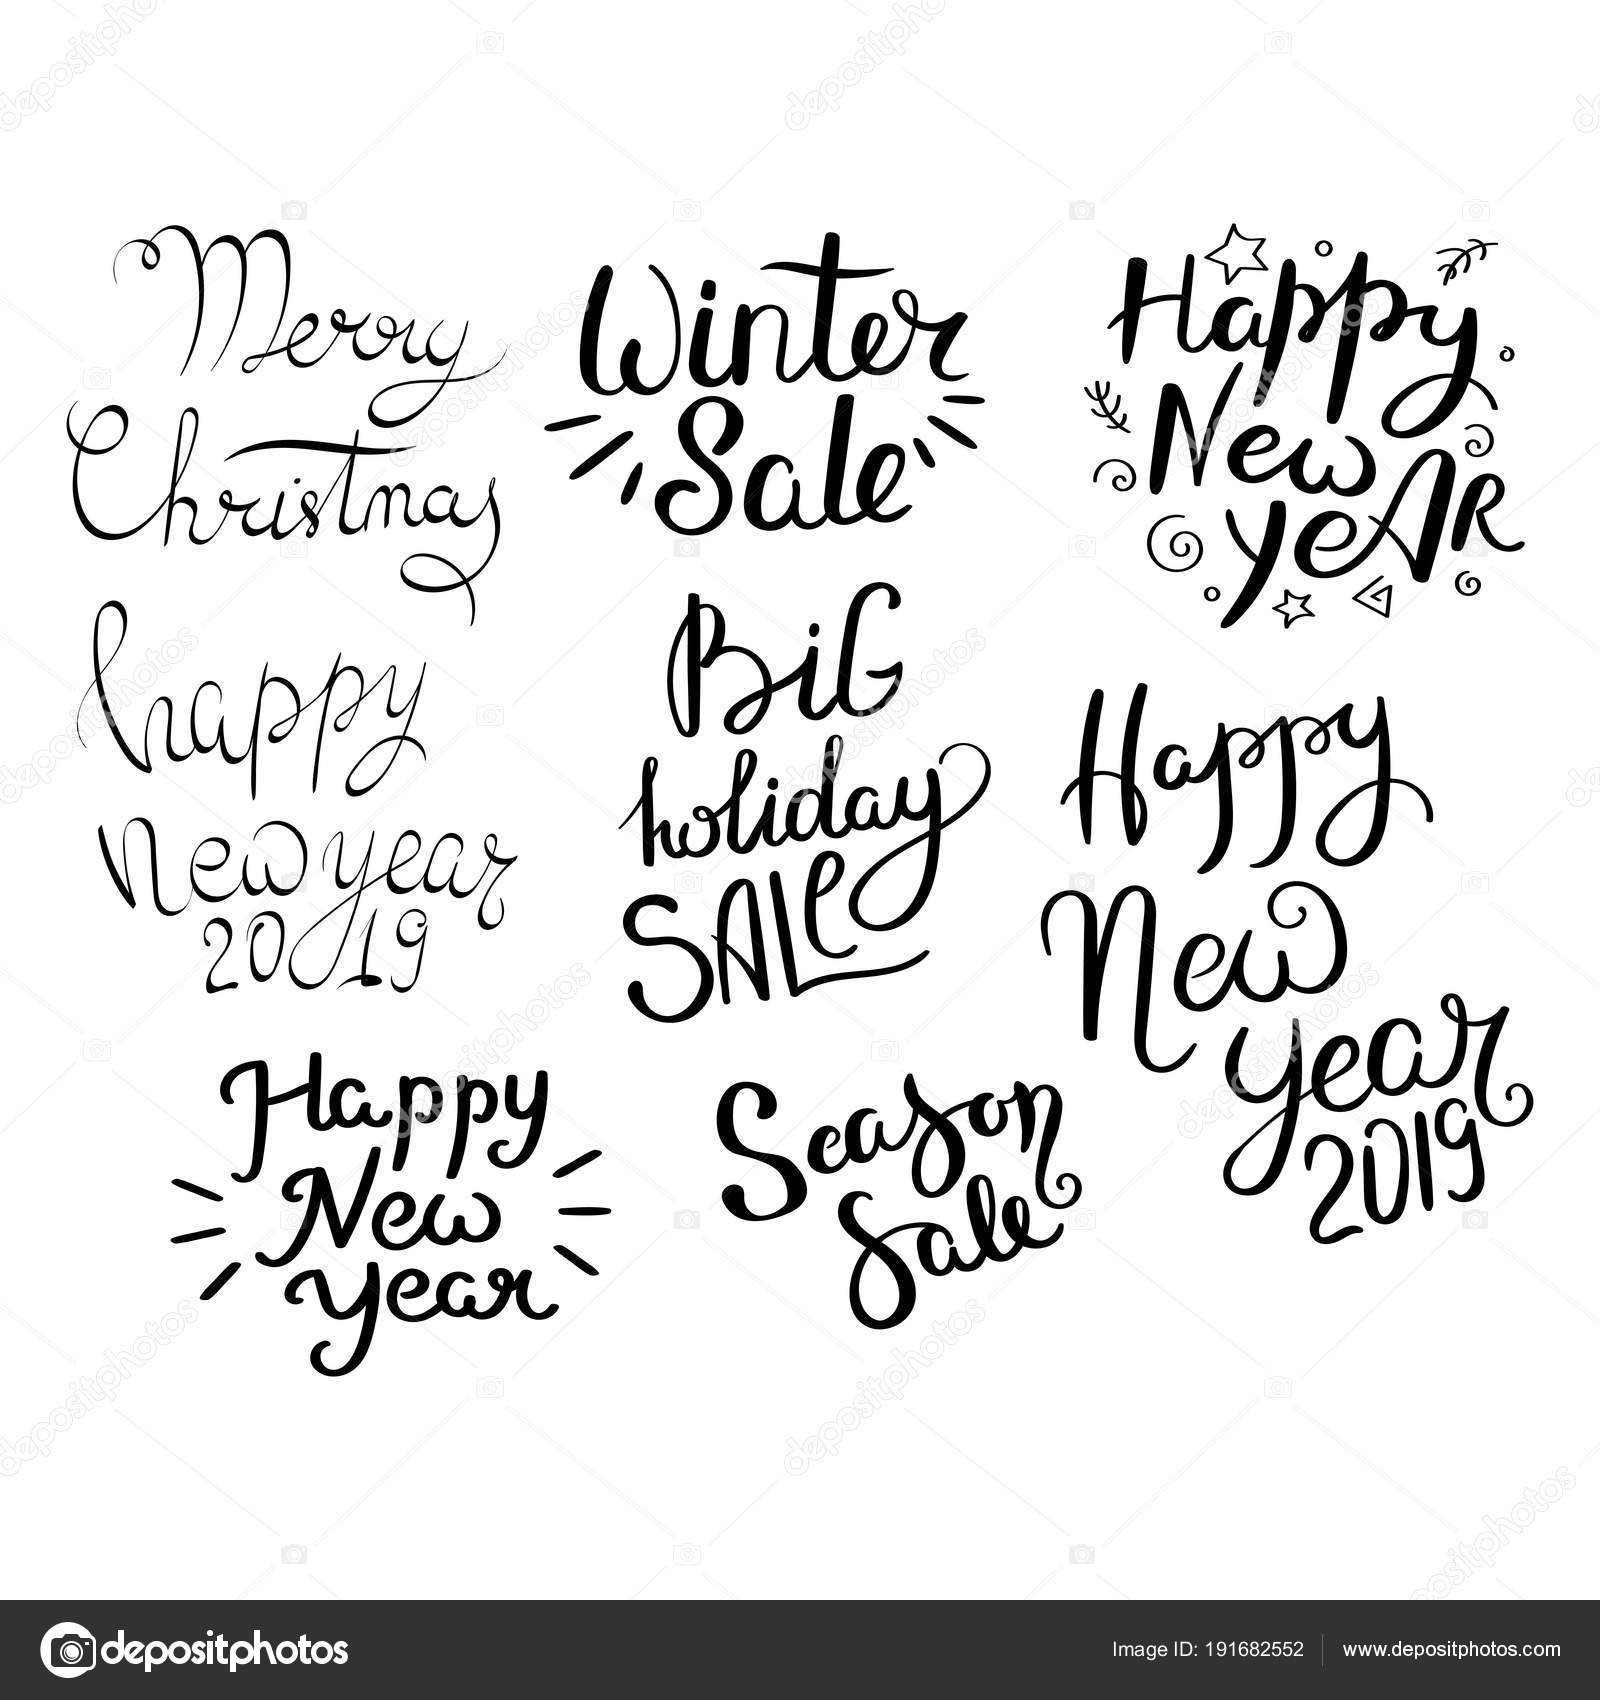 Merry
Christmas
Winter
Sale
Happy
New
yeAR
happy
New year
2019
BiG
holiday
SALe
Happy
New
year
2019
Happy
New
year
Season
Sale
depositphotos
Image ID: 191682552
www.depositphotos.com